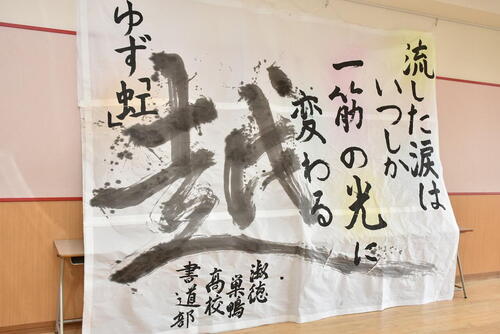 流した涙は
いつしか
一筋の光に
変わる
越
ゆず「虹」
淑徳
巣鴨
高校
書道部